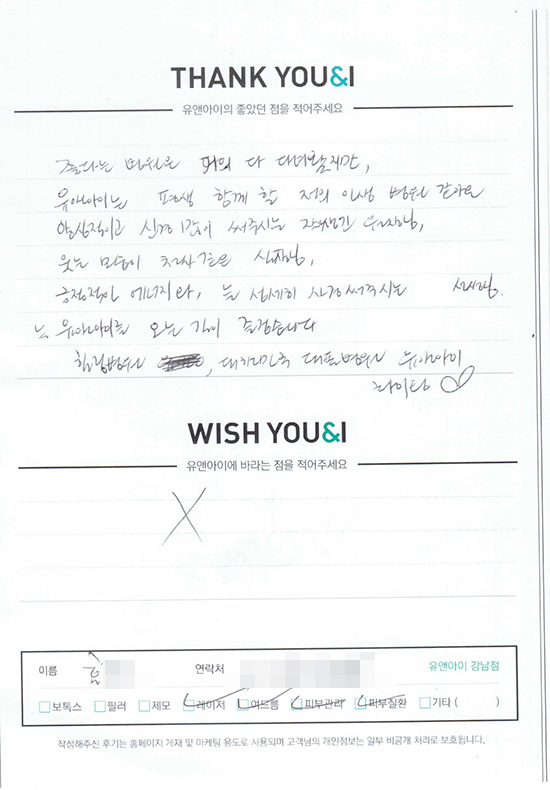 THANK YOU&I
유앤아이의 좋았던 점을 적어주세요
좋다는 병원은 거의 다 다녀봤지만,
유앤아이는 평생 함께 할 저의 인생 병원 같아요
양심적이고 신경 많이 써주시는 원장님,
웃는 모습이 천사같은 실장님,
긍정적인 에너지와, 늘 섬세히 신경써주시는
유앤아이를 오는 길이 즐겁습니다
힐링병원 , 대한민국 대표병원 유앤아이
화이팅 ♡
WISH YOU&I
유앤아이에 바라는 점을 적어주세요
X
이름 연락처 유앤아이 강남점
보톡스 필러 제모 레이저 여드름 피부관리 피부질환 기타 ( )
작성해주신 후기는 홈페이지 게재 및 마케팅 용도로 사용되며 고객님의 개인정보는 일부 비공개 처리로 보호됩니다.